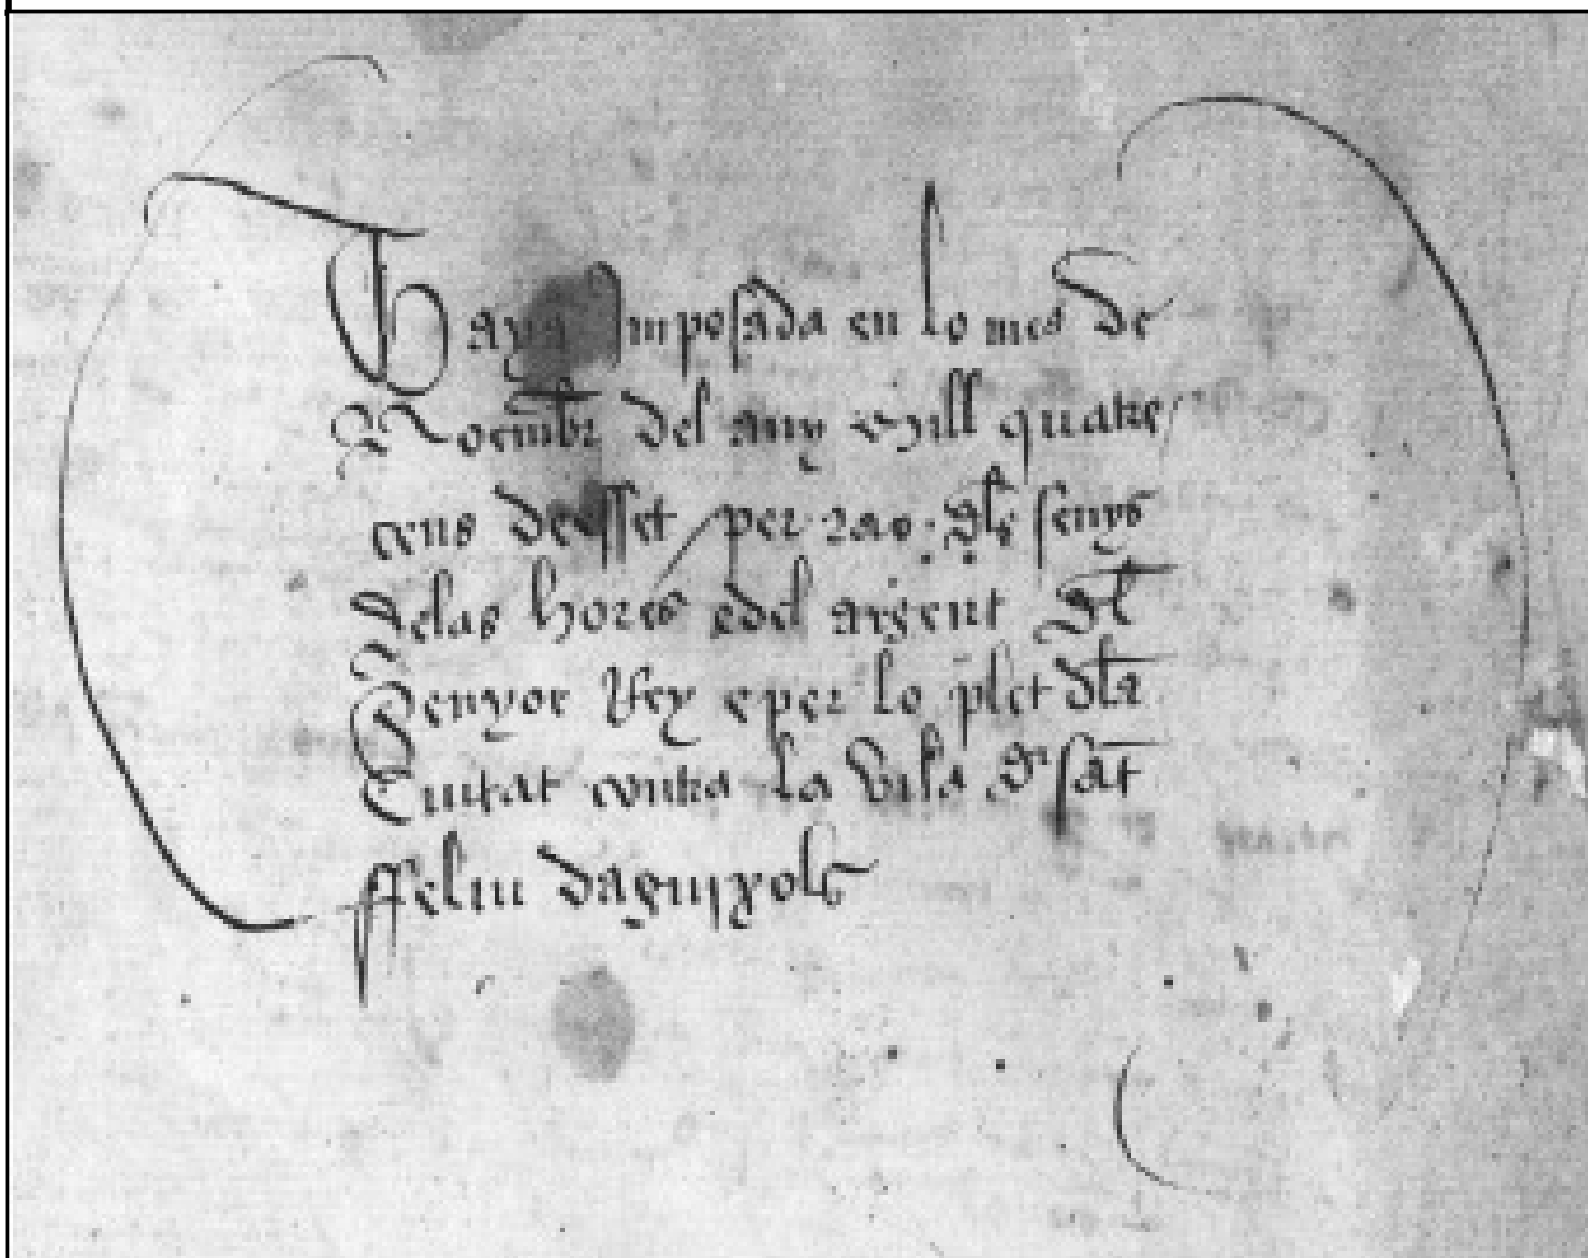 Taya Imposada en lo mes de
Noembr del any Mill quatre
cens desset per rao dls senys
Delas hores edel argent dl
Senyor Rey e per lo plet dla
Ciutat contra la vila d sat
ffeliu daguixols